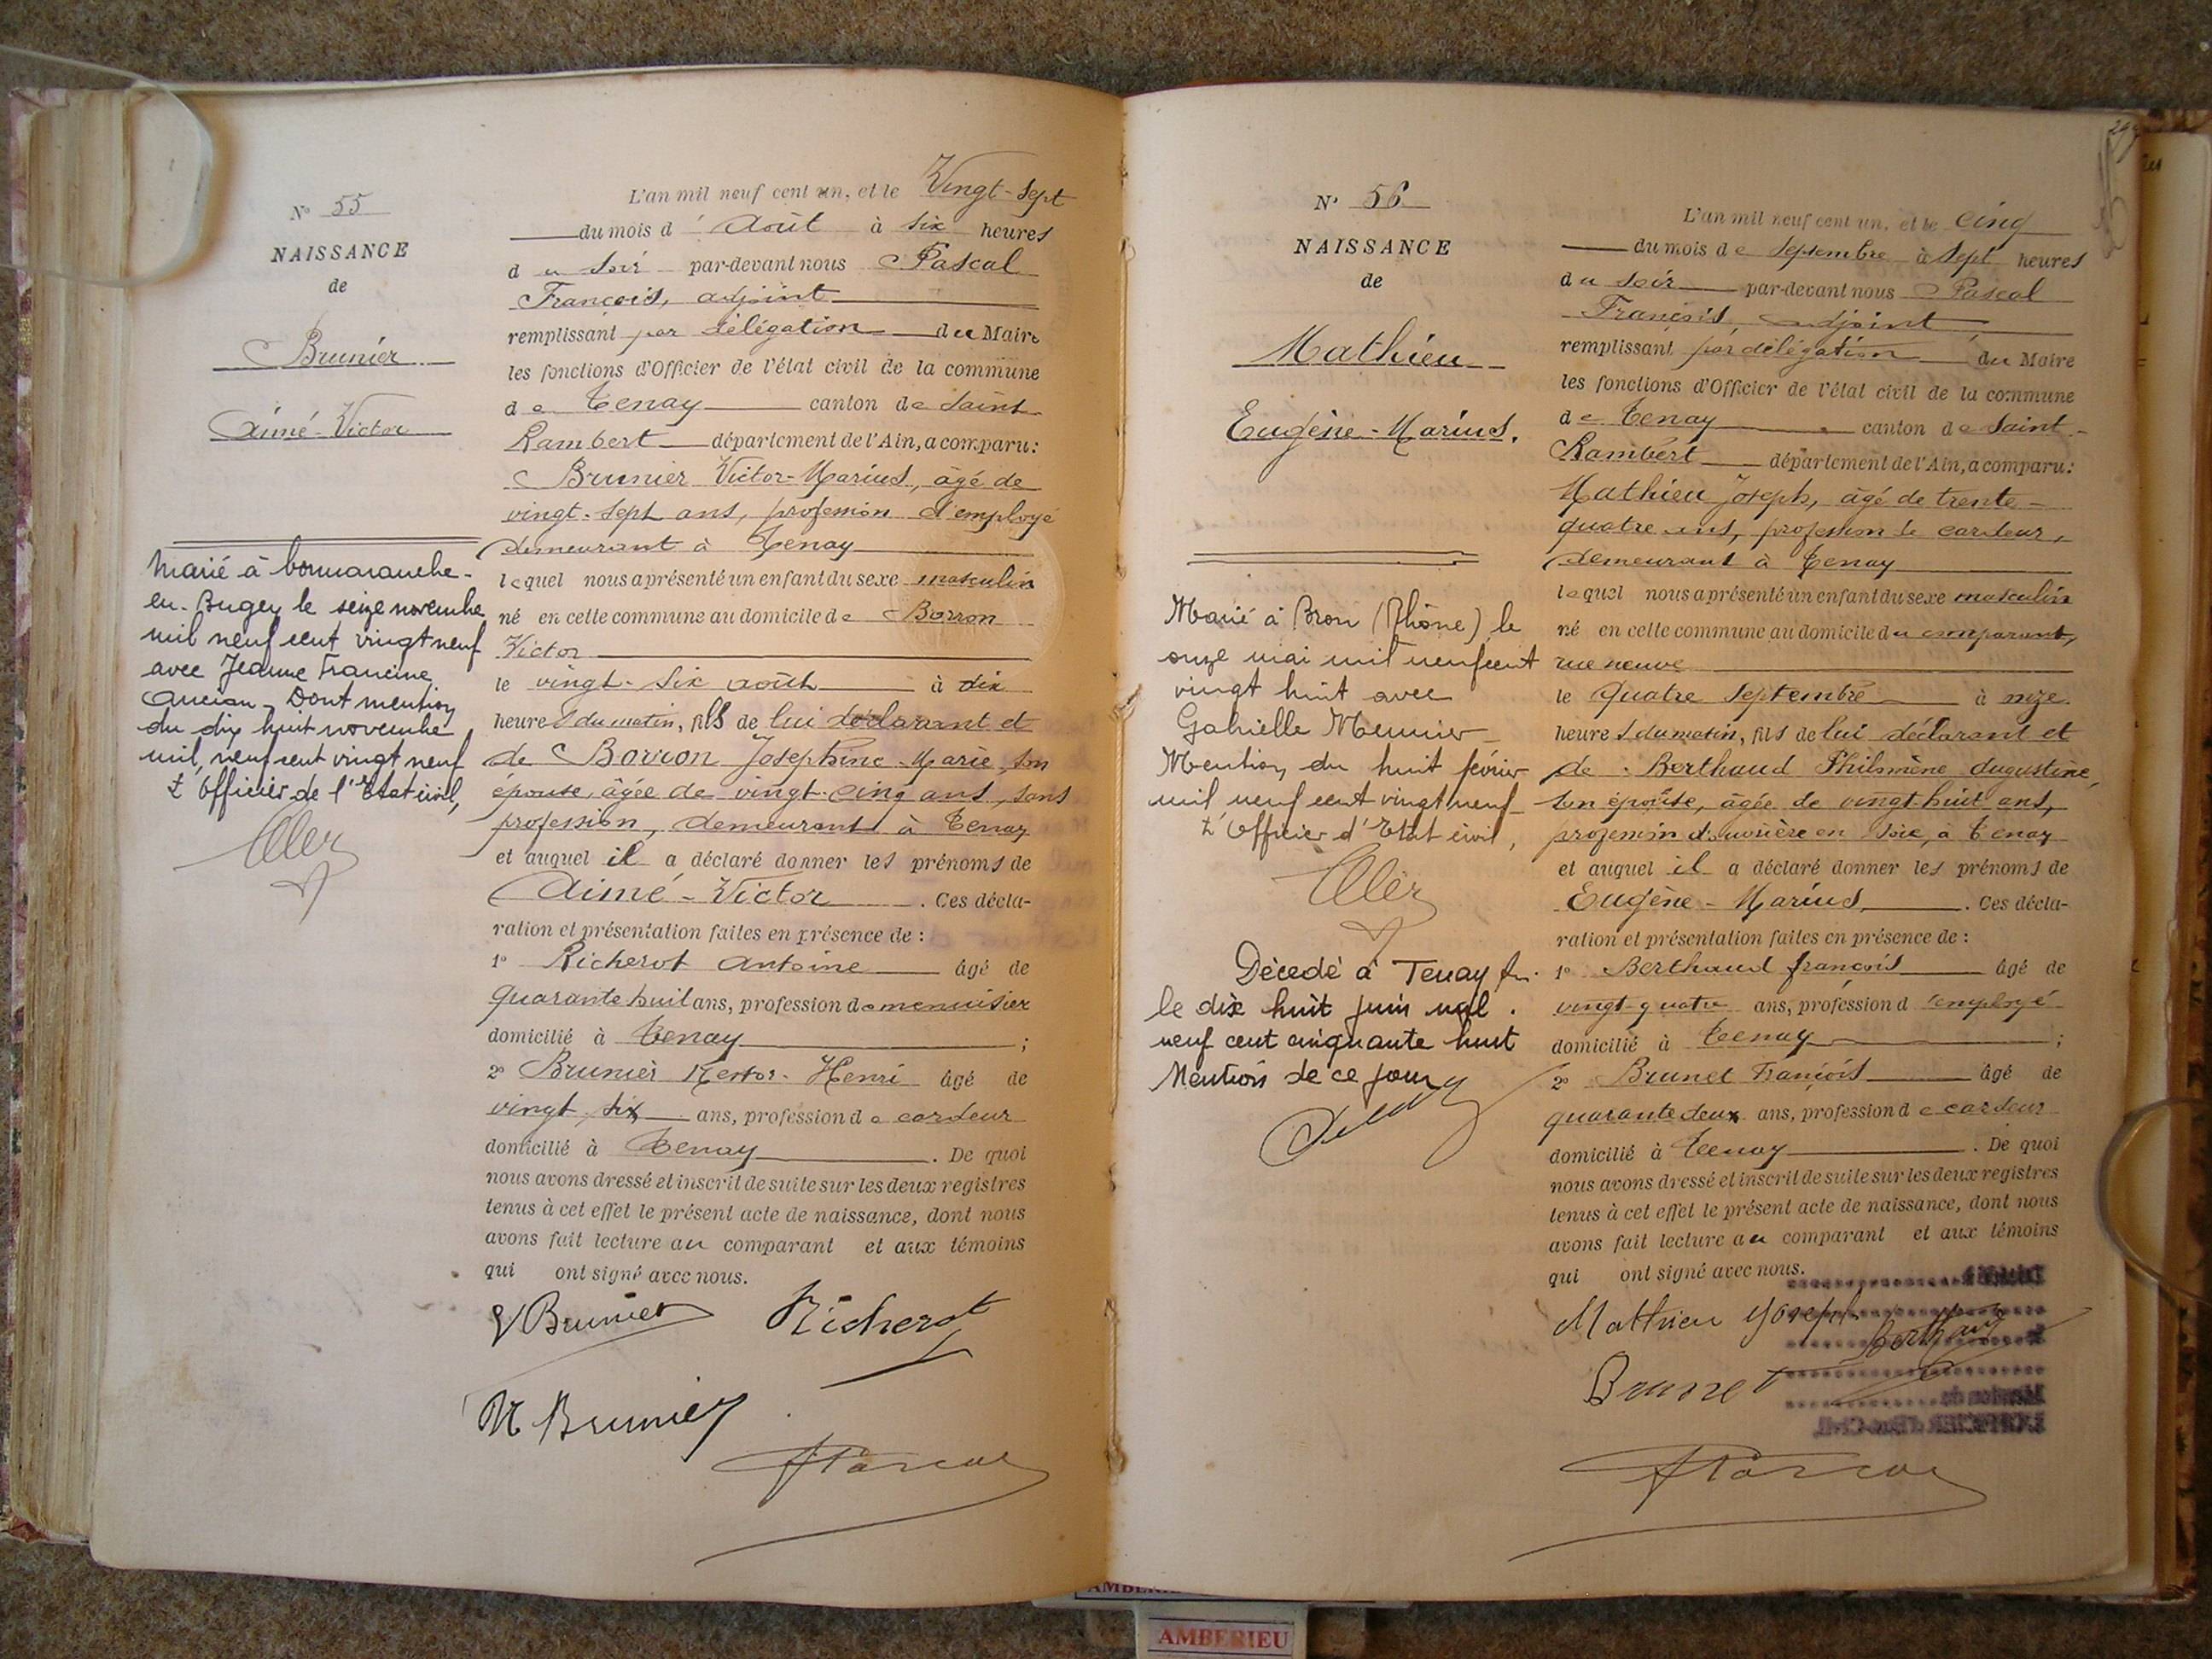 N° 55
NAISSANCE
de
Brunier
Aimé-Victor
Marié à Cormaranche-
en-Bugey le seize novembre
mil neuf cent vingt neuf
avec Jeanne Francine
Ancian - Dont mention
du dix huit novembre
mil neuf cent vingt neuf
L'officier de l'Etat civil,
L'an mil neuf cent un, et le Vingt-sept
du mois d'Août à six heures
du soir par-devant nous Pascal
François, adjoint
remplissant par délégation du Maire
les fonctions d'Officier de l'état civil de la commune
de Tenay canton de Saint
Rambert département de l'Ain, a comparu :
Brunier Victor-Marius, âgé de
vingt-sept ans, profession d'employé
demeurant à Tenay
lequel nous a présenté un enfant du sexe masculin
né en cette commune au domicile de Borron
Victor
le vingt-six août à dix
heures du matin, fils de lui déclarant et
de Borron Joséphine-Marie, son
épouse, âgée de vingt-cinq ans, sans
profession, demeurant à Tenay
et auquel il a déclaré donner les prénoms de
Aimé-Victor. Ces décla-
ration et présentation faites en présence de :
1° Richerot Antoine âgé de
quarante huit ans, profession de menuisier
domicilié à Tenay ;
2° Brunier Nestor-Henri âgé de
vingt-six ans, profession de cardeur
domicilié à Tenay. De quoi
nous avons dressé et inscrit de suite sur les deux registres
tenus à cet effet le présent acte de naissance, dont nous
avons fait lecture au comparant et aux témoins
qui ont signé avec nous.
V Brunier Richerot
N Brunier
F Pascal
N° 56
NAISSANCE
de
Mathieu
Eugène-Marius.
Marié à Bron (Rhône) le
onze mai mil neuf cent
vingt huit avec
Gabrielle Meunier
Mention du huit février
mil neuf cent vingt neuf
L'officier d'Etat civil,
Décédé à Tenay
le dix huit juin mil
neuf cent cinquante huit
Mention de ce jour
L'an mil neuf cent un, et le cinq
du mois de septembre à sept heures
du soir par-devant nous Pascal
François, adjoint
remplissant par délégation du Maire
les fonctions d'Officier de l'état civil de la commune
de Tenay canton de Saint-
Rambert département de l'Ain, a comparu :
Mathieu Joseph, âgé de trente-
quatre ans, profession de cardeur,
demeurant à Tenay
lequel nous a présenté un enfant du sexe masculin
né en cette commune au domicile du comparant,
rue neuve
le quatre septembre à onze
heures du matin, fils de lui déclarant et
de Berthaud Philomène Augustine,
son épouse, âgée de vingt-huit ans,
profession d'ouvrière en soie, à Tenay
et auquel il a déclaré donner les prénoms de
Eugène-Marius. Ces décla-
ration et présentation faites en présence de :
1° Berthaud François âgé de
vingt-quatre ans, profession d'employé
domicilié à Tenay ;
2° Brunet François âgé de
quarante deux ans, profession de cardeur
domicilié à Tenay. De quoi
nous avons dressé et inscrit de suite sur les deux registres
tenus à cet effet le présent acte de naissance, dont nous
avons fait lecture au comparant et aux témoins
qui ont signé avec nous.
Mathieu Joseph Berthaud
Brunet
F Pascal
AMBERIEU